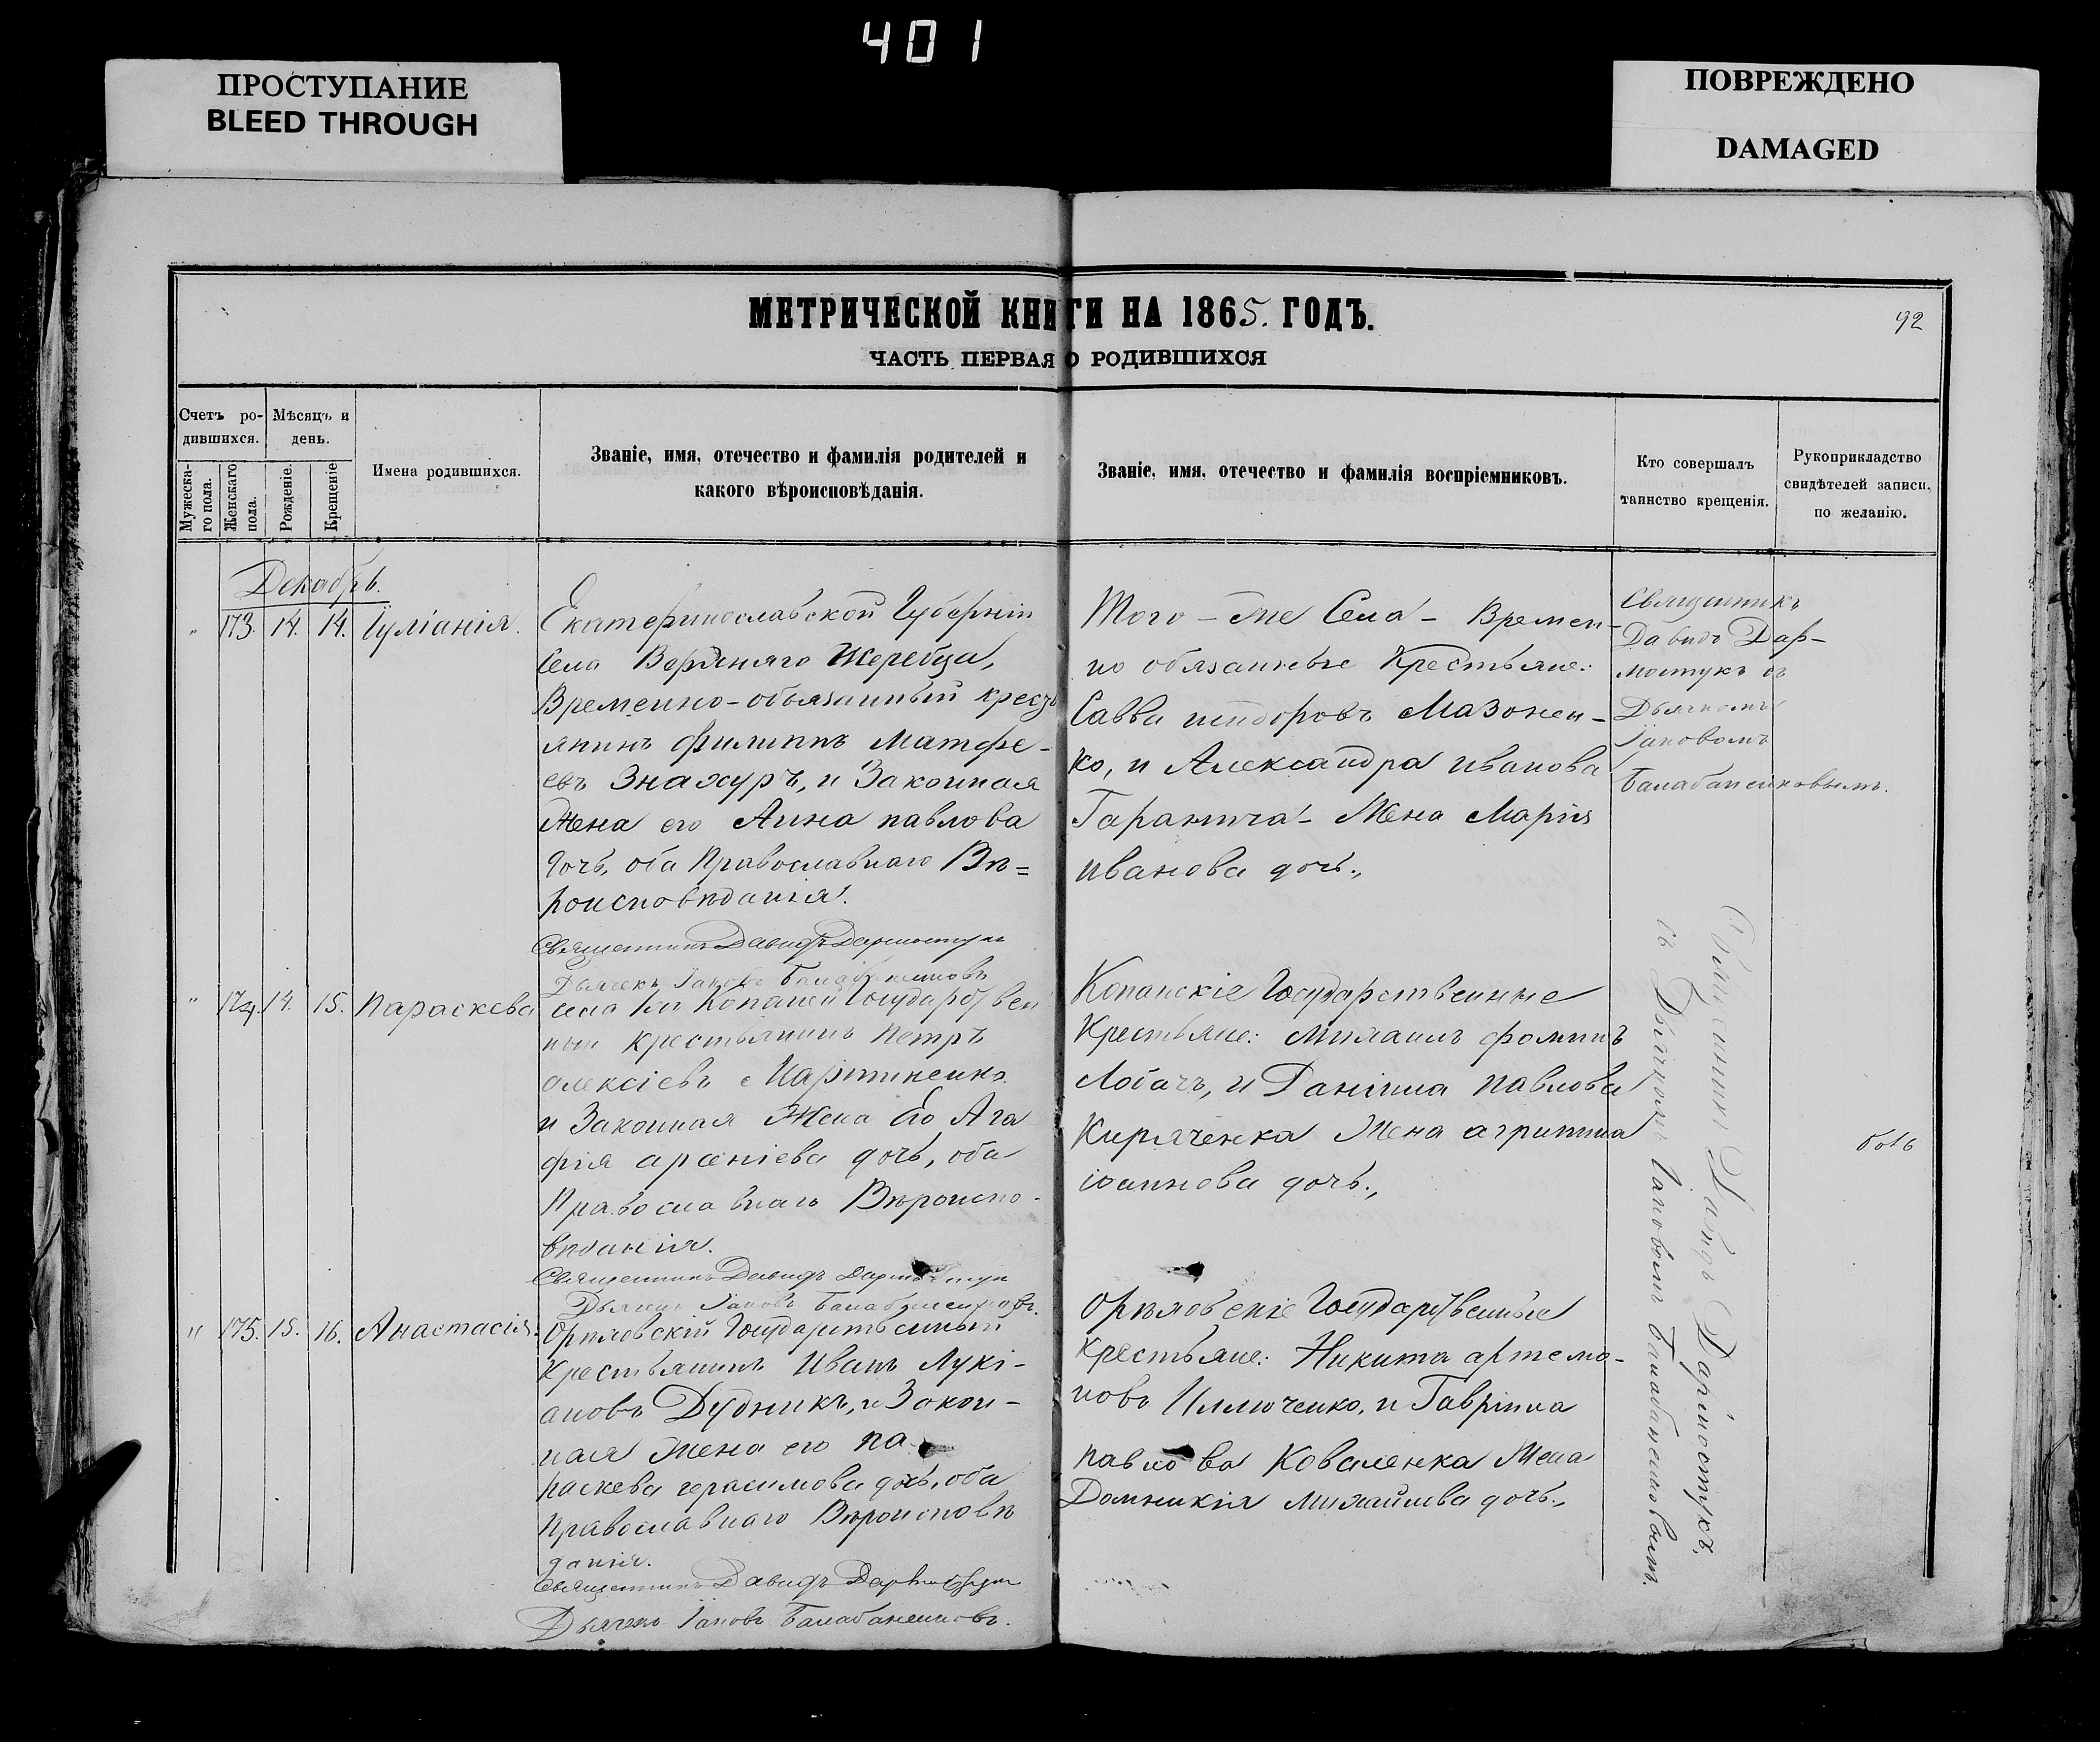 401
ПРОСТУПАНИЕ
BLEED THROUGH
ПОВРЕЖДЕНО
DAMAGED
МЕТРИЧЕСКОЙ КНИГИ НА 1865. ГОДЪ.
92
ЧАСТЬ ПЕРВАЯ О РОДИВШИХСЯ
Счетъ ро-
дившихся.
Мѣсяцъ и
день.
Мужеска-
го пола.
Женскаго
пола.
Рожденіе.
Крещеніе
Имена родившихся.
Званіе, имя, отечество и фамилія родителей и
какого вѣроисповѣданія.
Званіе, имя, отечество и фамилія воспріемниковъ.
Кто совершалъ
таинство крещенія.
Рукоприкладство
свидѣтелей записи,
по желанію.
Декабрь.
" 173. 14. 14. Іуліанія.
Екатеринославской Губерніи
Села Верхняго Жеребца,
Временно-обязанный крест
янинъ Филиппъ Матфе-
евъ Знахуръ, и Законная
Жена его Анна павлова
дочь, оба Православнаго Вѣ=
роисповѣданія.
Священникъ Давидъ Дармостукъ
Дьячекъ Іаковъ Балабаненковъ
Того-же Села - Времен-
но обязанные Крестьяне:
Савва Мазонен-
ко, и Александра иванова
Гаранича - Жена Марія
иванова дочь.,
Священникъ
Давидъ Дар-
мостукъ съ
Дьячкомъ
Іаковомъ
Балабаненковымъ.
" 174. 14. 15. Параскева
села Копаней Государствен
ный крестьянинъ Петръ
алексіевъ Мартиненко
и Законная Жена Его Ага
фія арсеніева дочь, оба
Православнаго Вѣроиспо-
вѣданія.
Священникъ Давидъ Дармостукъ
Дьячекъ Іаковъ Балабаненковъ.
Копанскіе Государственные
Крестьяне: Михаилъ фоминъ
Лобачъ, и Даніила павлова
Киряченка Жена агрипина
іоаннова дочь.,
" 175. 15. 16. Анастасія.
Орѣховскій Государственный
Крестьянинъ Иванъ Лукі-
ановъ Дудникъ, и Закон-
ная Жена его па-
раскева герасимова дочь, оба
Православнаго Вѣроисповѣ
данія.
Священникъ Давидъ Дармостукъ
Дьячекъ Іаковъ Балабаненковъ.
Орѣховскіе Государственные
Крестьяне: Никита артемо-
новъ Илюченко, и Гавріила
павлова Коваленка Жена
Домникія Михайлова дочь.,
Священникъ Давидъ Дармостукъ,
съ Дьячкомъ Іаковомъ Балабаненковымъ.